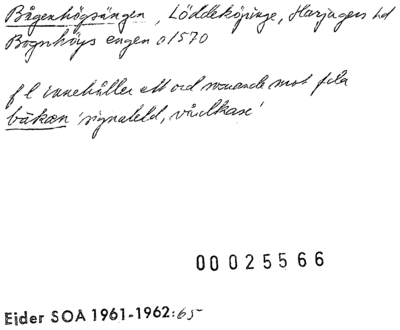 Bågenhögsängen, Löddeköpinge, Harjagers hd
Bognhöys engen o 1570
fl innehåller ett ord svarande mot fda
båkæn 'signaleld, vårdkase'
00025566
Ejder SOA 1961-1962:65